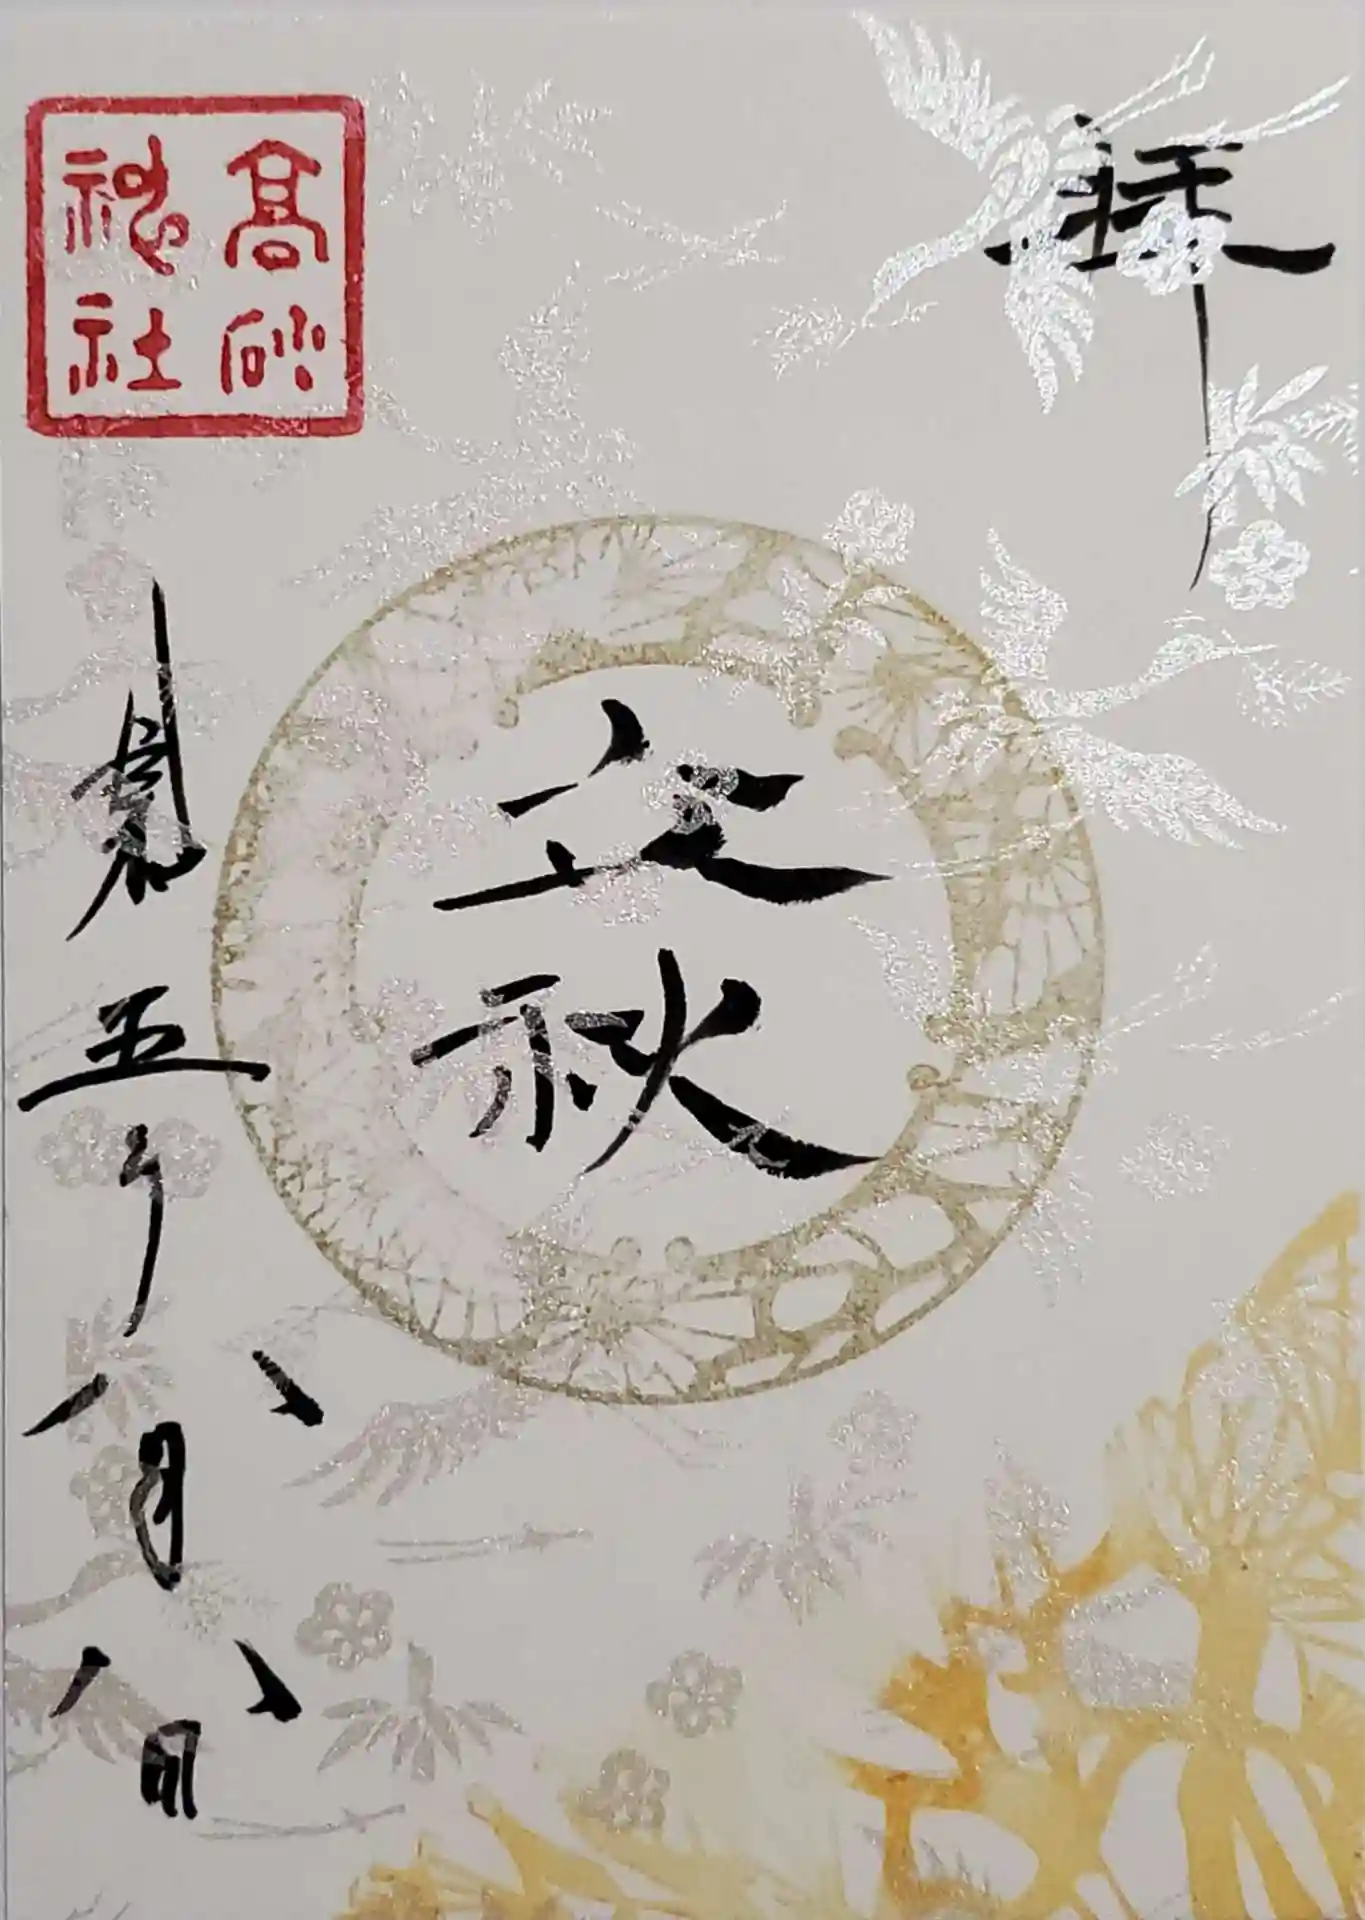 奉拝
髙砂
神社
立秋
五年八月八日